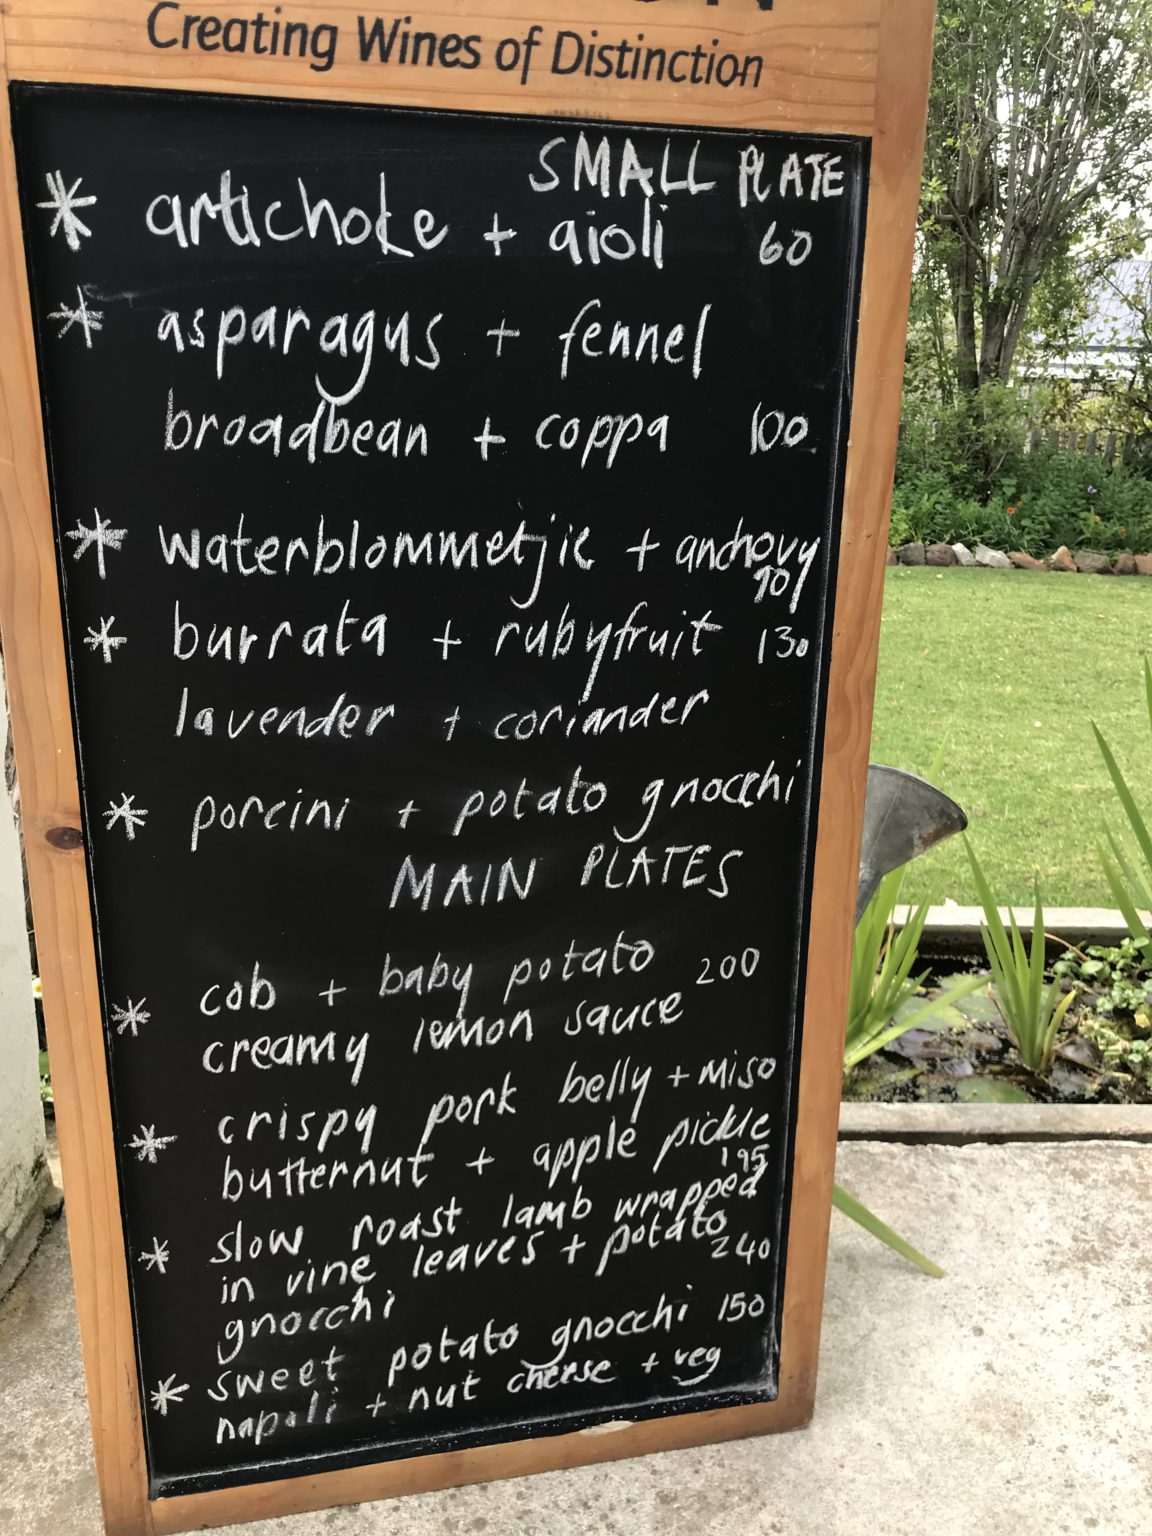 Creating Wines of Distinction
SMALL PLATE
* artichoke + aioli 60
* asparagus + fennel
broadbean + coppa 100
* waterblommetjie + anchovy
90
* burrata + rubyfruit 130
lavender + coriander
* porcini + potato gnocchi
MAIN PLATES
* cob + baby potato 200
creamy lemon sauce
* crispy pork belly + miso
butternut + apple pickle
195
* slow roast lamb wrapped
in vine leaves + potato
240
gnocchi
* sweet potato gnocchi 150
napoli + nut cheese + veg